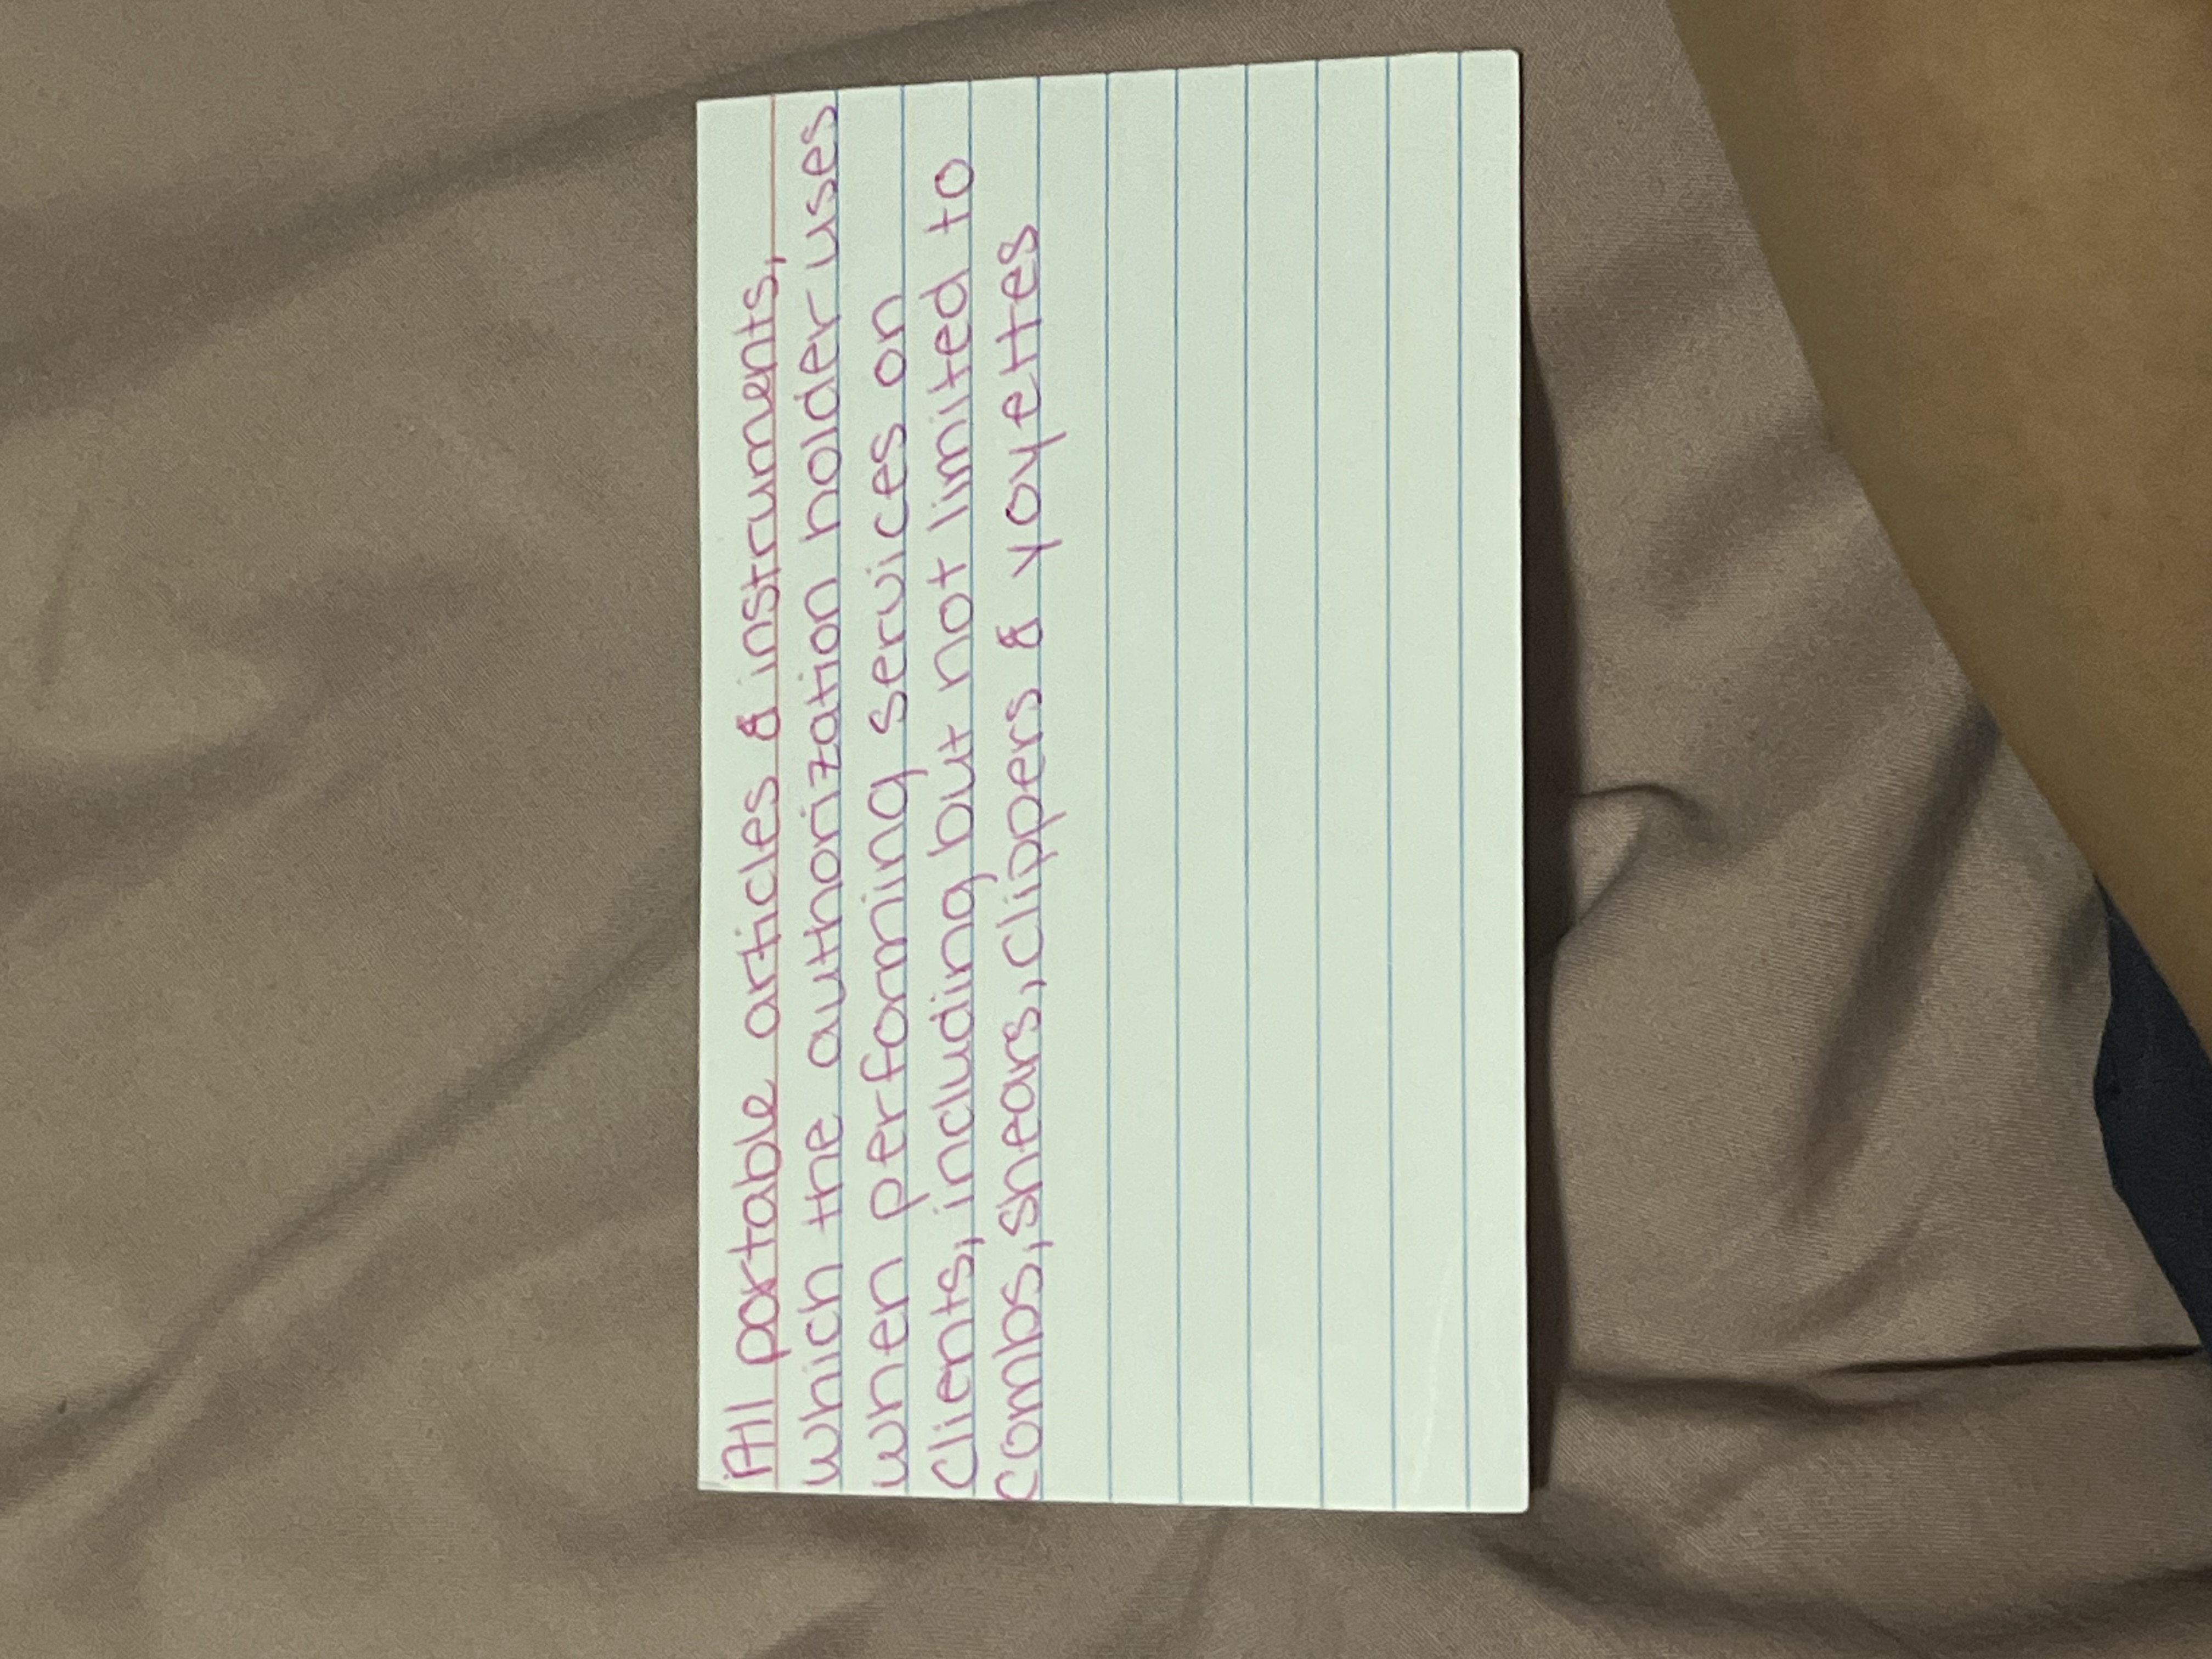 All portable articles & instruments,
which the authorization holder uses
when performing services on
Clients, including but not limited to
combs, shears, clippers & yoyettes